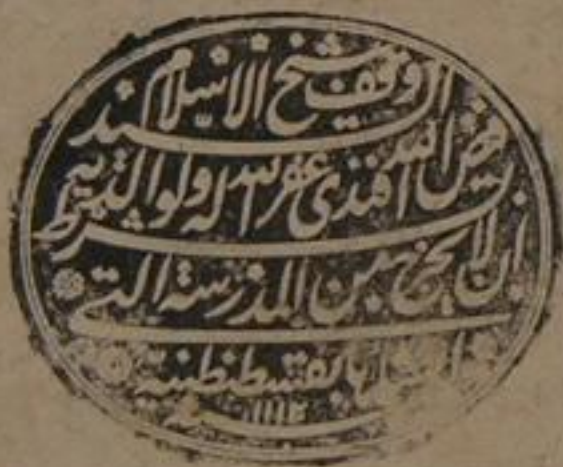 وقف شيخ الاسلام السيد
فيض الله افندى غفر الله له ولوالديه بشرط
ان لا يخرج من المدرسة التى
انشأها بقسطنطينية
١١١٢